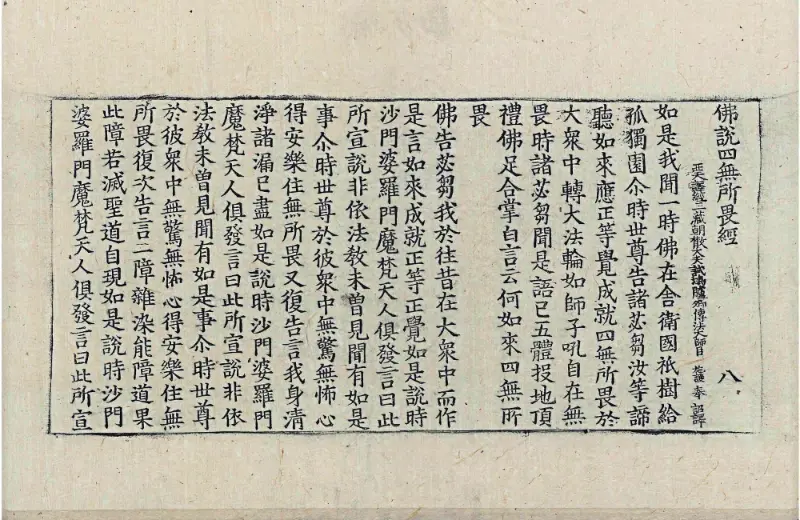 佛說四無所畏經 八
西天譯經三藏朝散大夫試鴻臚卿傳法大師臣 施護 奉 詔譯
如是我聞一時佛在舍衛國祇樹給
孤獨園尒時世尊告諸苾芻汝等諦
聽如來應正等覺成就四無所畏於
大衆中轉大法輪如師子吼自在無
畏時諸苾芻聞是語已五體投地頂
禮佛足合掌白言云何如來四無所
畏
佛告苾芻我於往昔在大衆中而作
是言如來成就正等正覺如是說時
沙門婆羅門魔梵天人俱發言曰此
所宣說非依法教未曾見聞有如是
事尒時世尊於彼衆中無驚無怖心
得安樂住無所畏又復告言我身清
淨諸漏已盡如是說時沙門婆羅門
魔梵天人俱發言曰此所宣說非依
法教未曾見聞有如是事尒時世尊
於彼衆中無驚無怖心得安樂住無
所畏復次告言二障雜染能障道果
此障若滅聖道自現如是說時沙門
婆羅門魔梵天人俱發言曰此所宣